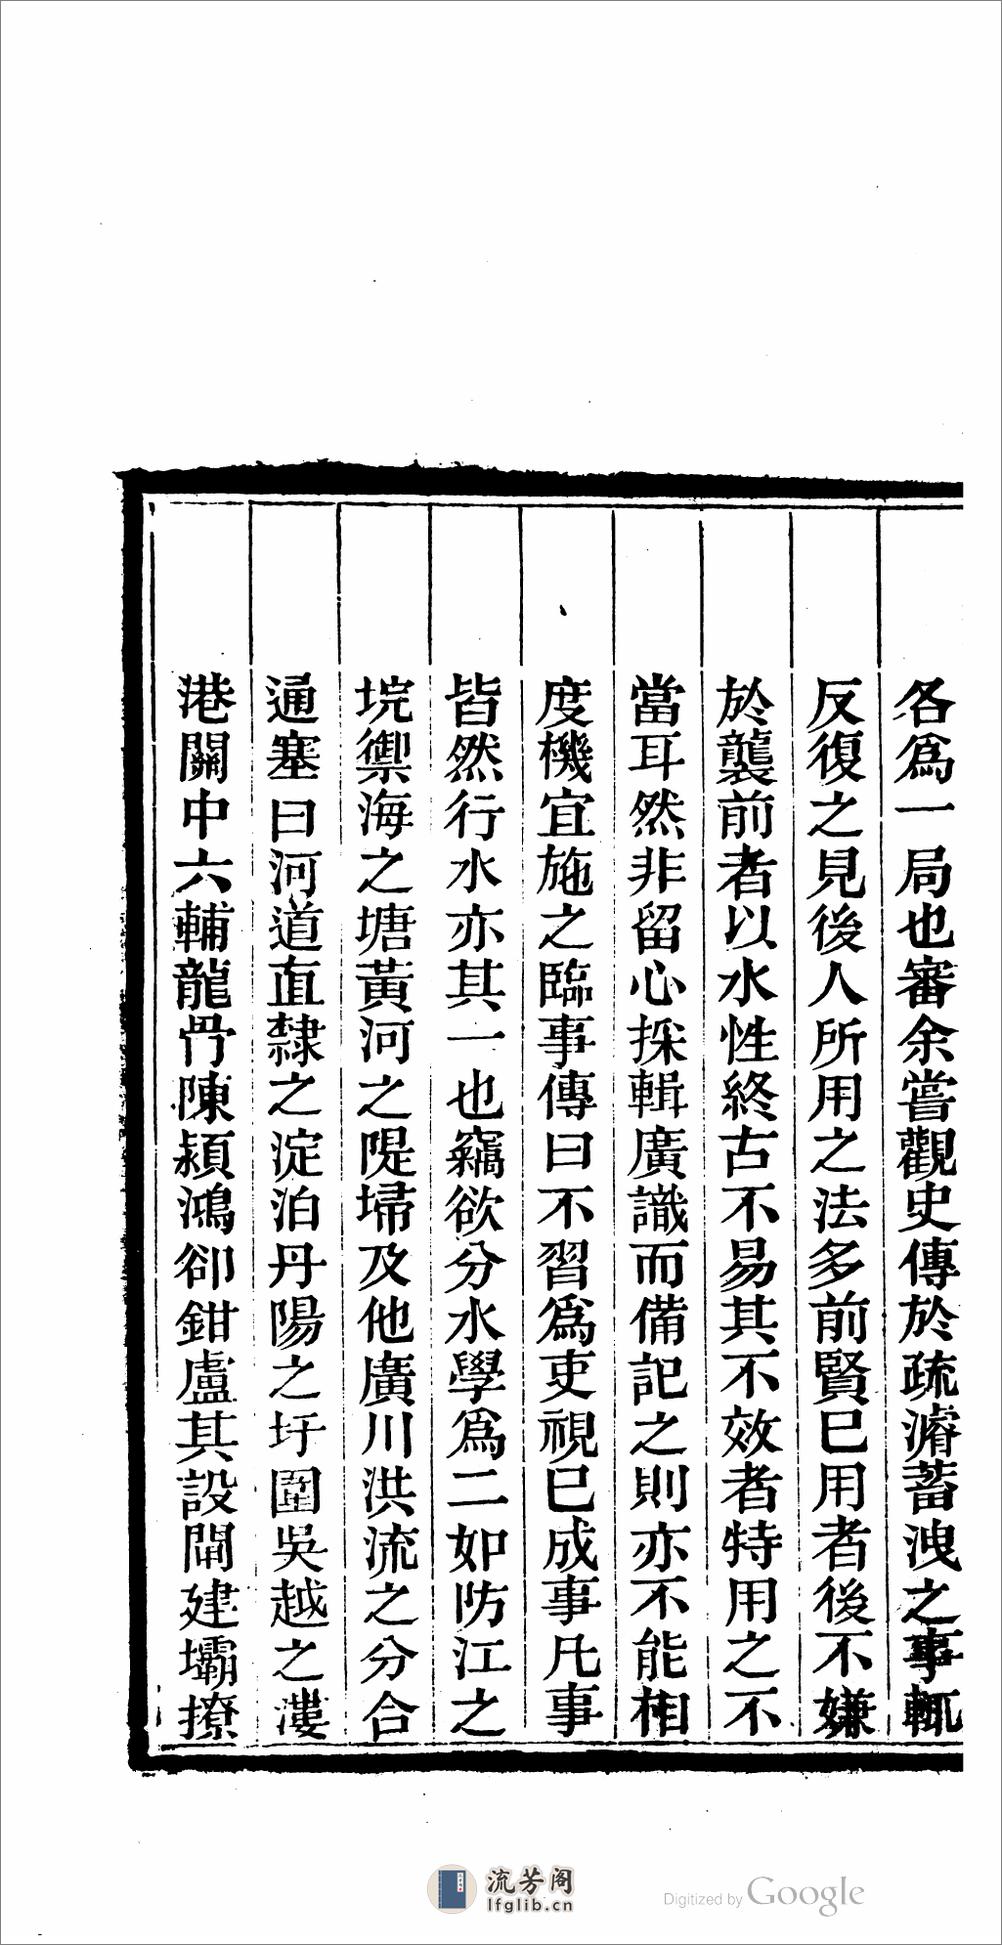 各爲一局也審余嘗觀史傳於疏濬蓄洩之事輒
反復之見後人所用之法多前賢已用者後不嫌
於襲前者以水性終古不易其不效者特用之不
當耳然非留心採輯廣識而備記之則亦不能相
度機宜施之臨事傳曰不習爲吏視已成事凡事
皆然行水亦其一也竊欲分水學爲二如防江之
垸禦海之塘黃河之隄埽及他廣川洪流之分合
通塞曰河道直隸之淀泊丹陽之圩圍吳越之漊
港關中六輔龍骨陳潁鴻郤鉗盧其設閘建壩撩
流芳阁
lfglib.cn
Digitized by Google